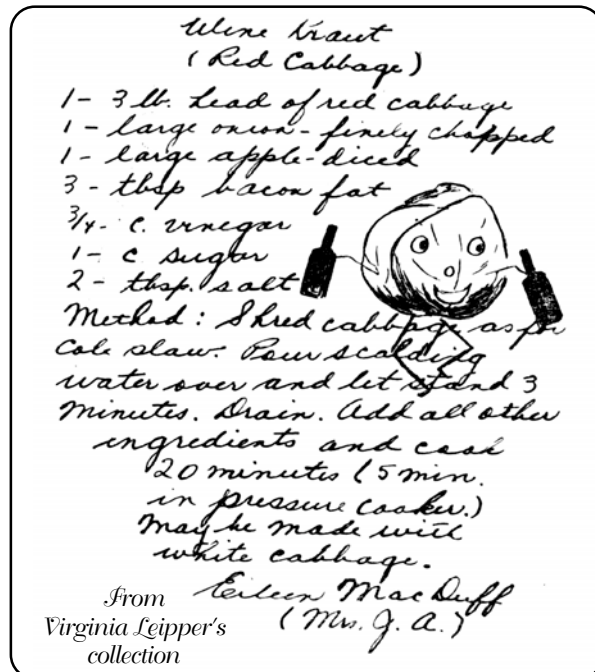 Wine Kraut
(Red Cabbage)
1- 3 lb. head of red cabbage
1- large onion- finely chopped
1- large apple-diced
3- tbsp bacon fat
3/4- c. vinegar
1- c sugar
2- tbsp. salt
Method: Shred cabbage as for
cole slaw. Pour scalding
water over and let stand 3
minutes. Drain. Add all other
ingredients and cook
20 minutes (5 min.
in pressure cooker.)
May be made with
white cabbage.
Eileen MacDuff
(Mrs. J. A.)
From
Virginia Leipper's
collection